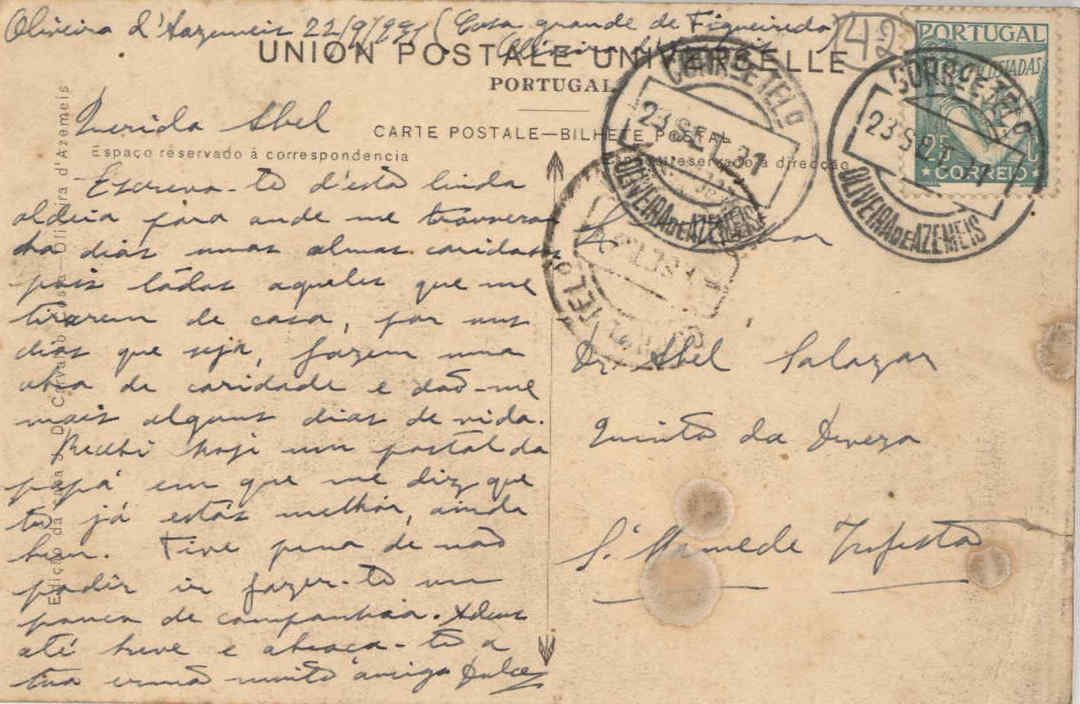 Oliveira d'Azemeis 22/9/ (Casa grande de Figueiredo)
Oliveira
42
UNION POSTALE UNIVERSELLE
PORTUGAL
CARTE POSTALE—BILHETE POSTAL
Espaço réservado á correspondencia
reservado á direcção
PORTUGAL
LUSIADAS
25 C
CORREIO
CORR. E TEL.
23 SET
OLIVEIRA DE AZEMEIS
CORR. E TEL.
23 SET
OLIVEIRA DE AZEMEIS
TEL
Querido Abel
Escrevo-te d'esta linda
aldeia para onde me trouxeram
ha dias umas almas caridosas
pois tôdas aqueles que me
tirarem de casa, por uns
dias que seja, fazem uma
obra de caridade e dão-me
mais alguns dias de vida.
Recebi hoje um postal do
papá em que me diz que
tu já estás melhor, ainda
bem. Tive pena de não
poder ir fazer-te um
pouco de companhia. Adeus
até breve e abraça-te a
tua irmã muito amiga Dulce
Dr. Abel Salazar
Quinta da Deveza
S. Mamede Infesta
Edição da
Oliveira d'Azemeis